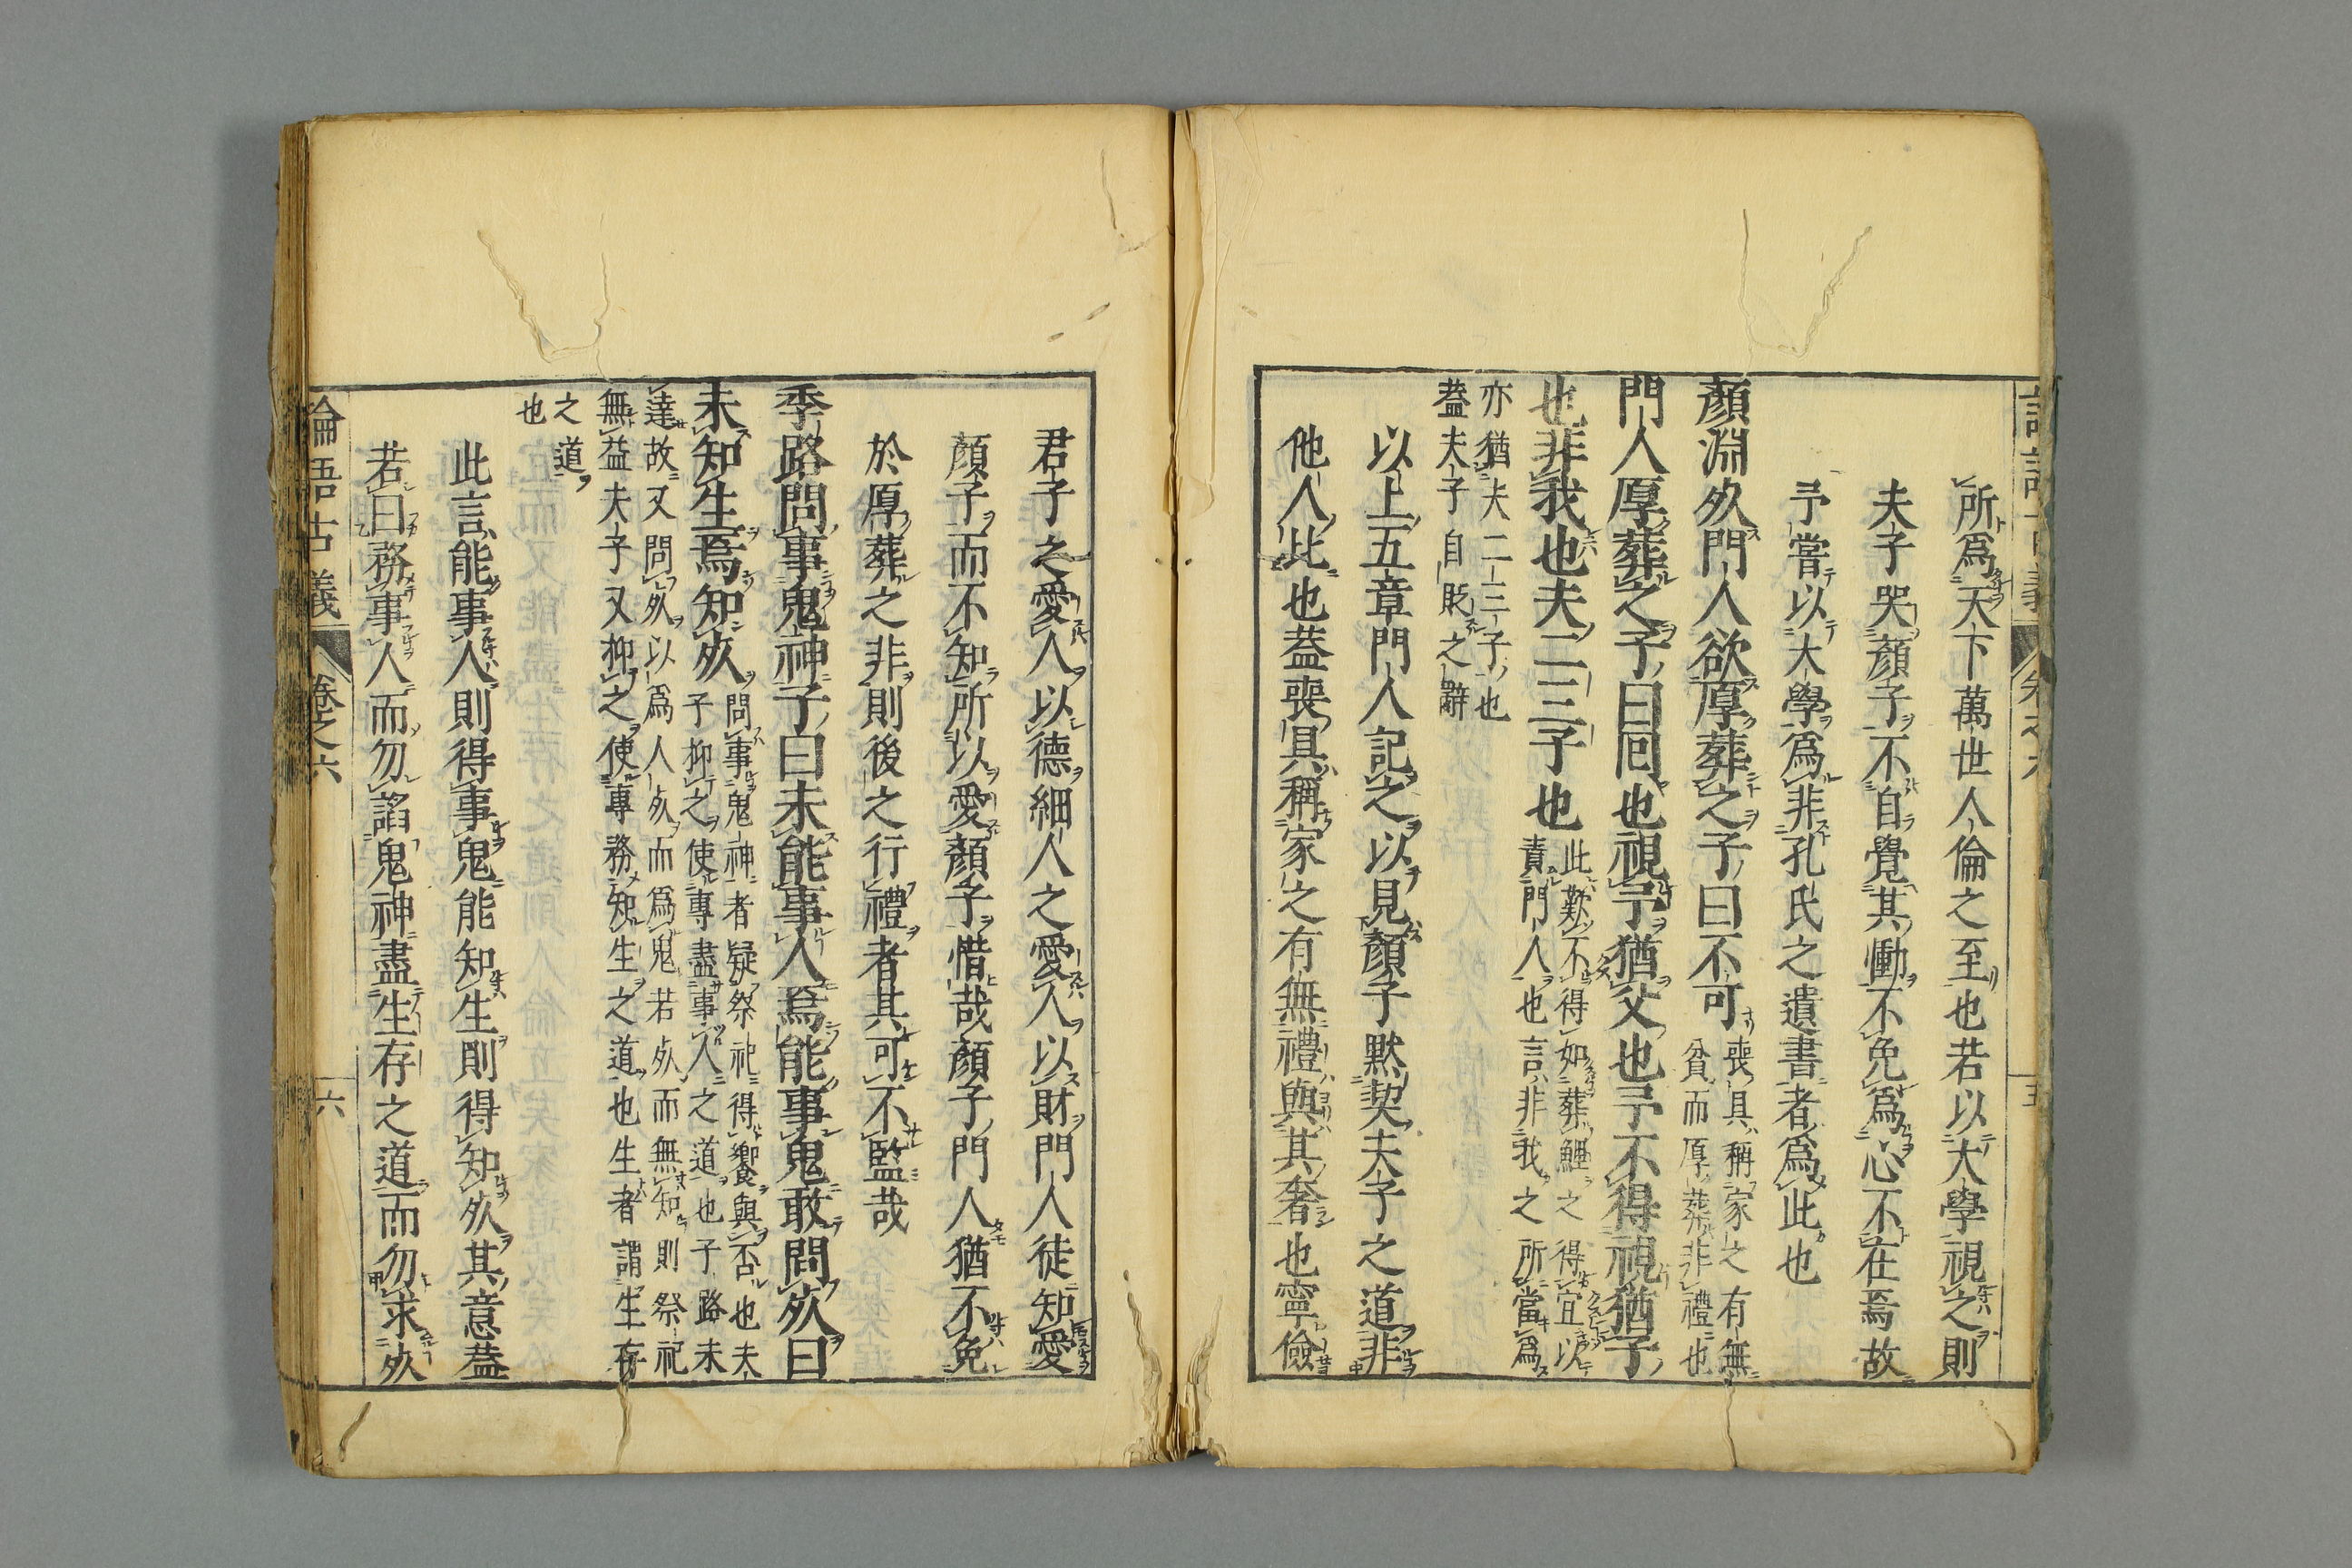 所爲天下萬世人倫之至也若以大學視之則
夫子哭顏子不自覺其慟不免爲心不在焉故
予嘗以大學爲非孔氏之遺書者爲此也
顏淵死門人欲厚葬之子曰不可
喪具稱家之有無
貧而厚葬非禮也
門人厚葬之子曰回也視予猶父也予不得視猶子
也非我也夫二三子也
此歎不得如葬鯉之得宜以
責門人也言非我之所當爲
亦猶夫二三子也
蓋夫子自貶之辭
以上五章門人記之以見顏子默契夫子之道非
他人比也蓋喪具稱家之有無禮與其奢也寧儉
君子之愛人以德細人之愛人以財門人徒知愛
顏子而不知所以愛顏子惜哉顏子門人猶不免
於厚葬之非則後之行禮者其可不監哉
季路問事鬼神子曰未能事人焉能事鬼敢問死曰
未知生焉知死
問事鬼神者疑祭祀得饗與否也夫
子抑之使專盡事人之道也子路未
達故又問死以爲人死而爲鬼若死而無知則祭祀
無益夫子又抑之使專務知生之道也生者謂生存
之道
也
此言能事人則得事鬼能知生則得知死其意蓋
若曰務事人而勿諂鬼神盡生存之道而勿求死
論語古義
卷之六
六